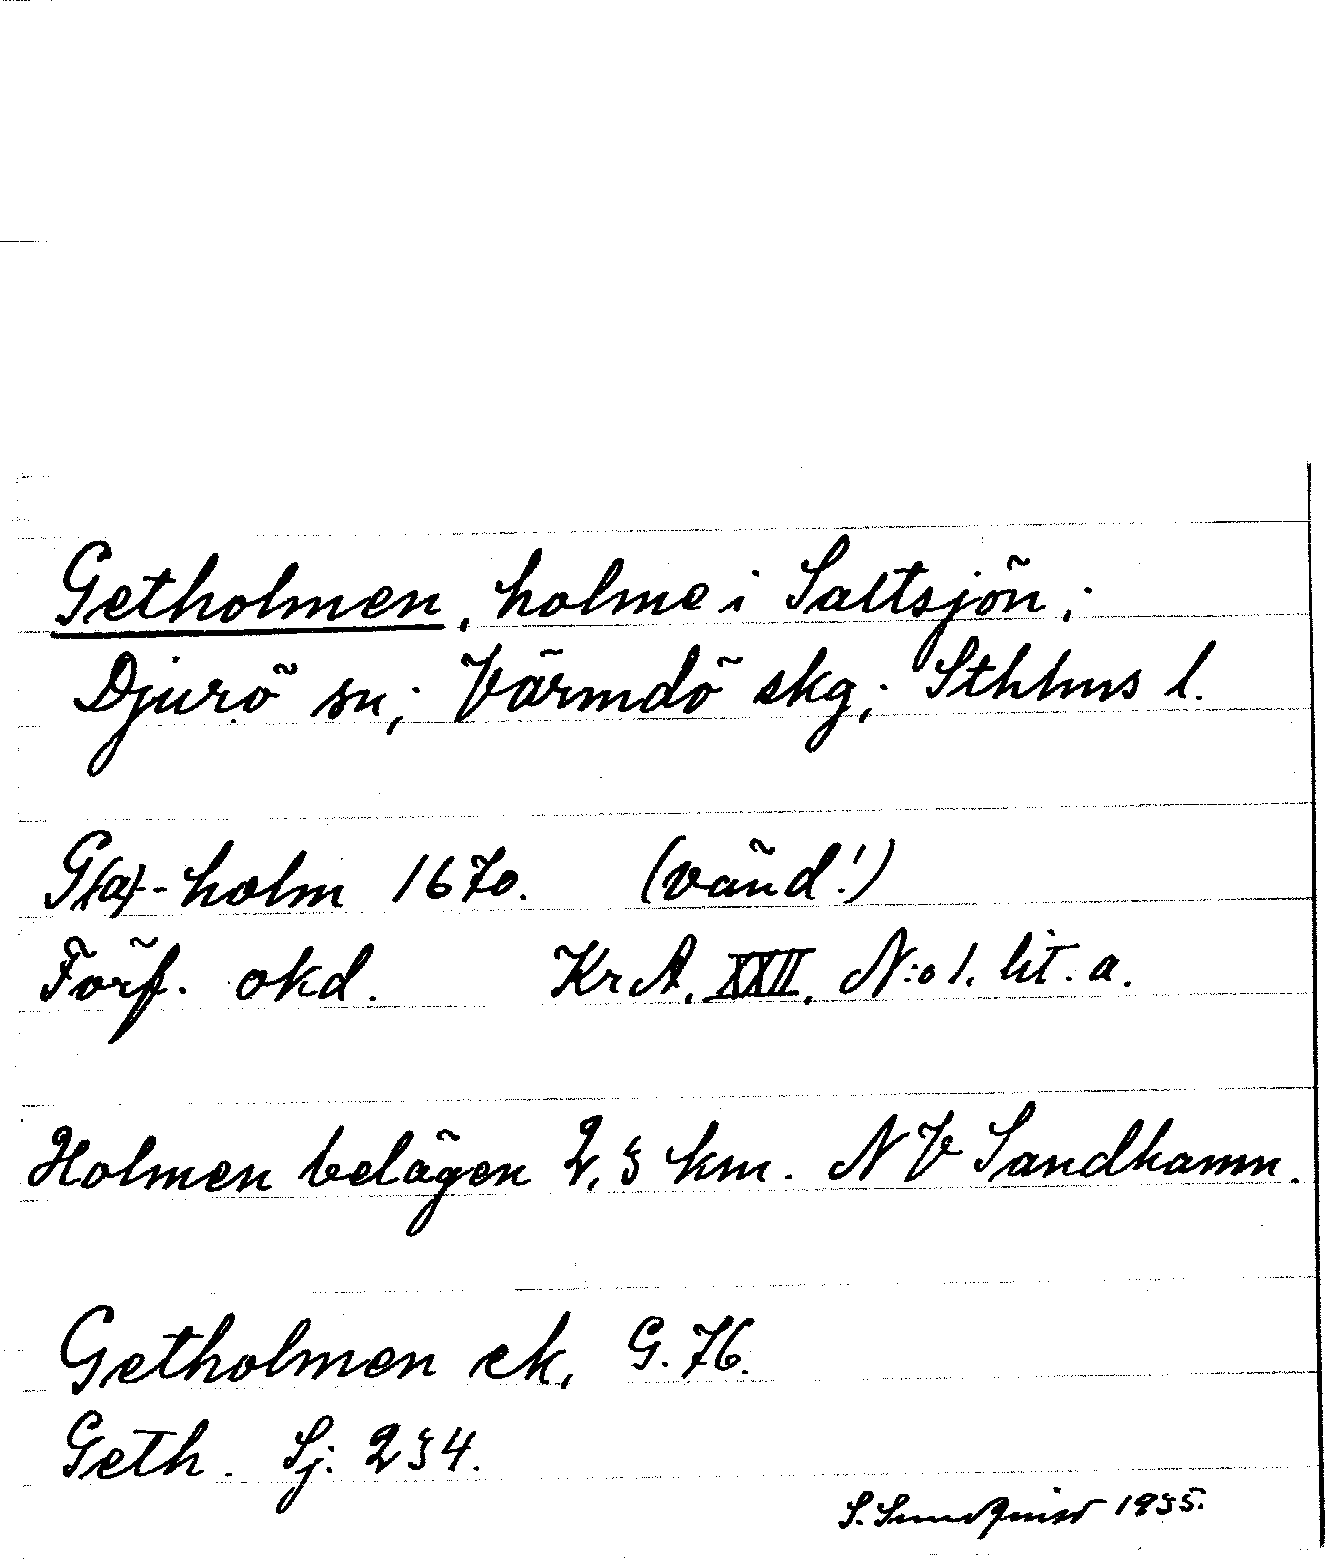 Getholmen, holme i Saltsjön;
Djurö sn; Värmdö skg; Sthlms l.
G(a)-holm 1670. (vänd!)
Förf. okd. KrA. XXII, N:o 1. lit. a.
Holmen belägen 2,3 km. NV Sandhamn.
Getholmen ek, G. 76.
Geth. Sj. 234.
S. Sundquist 1935.